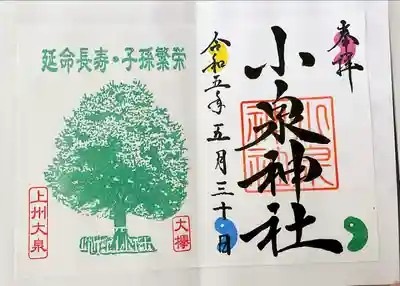 奉拝
小泉神社
令和五年五月三十日
延命長寿・子孫繁栄
上州大泉
大欅